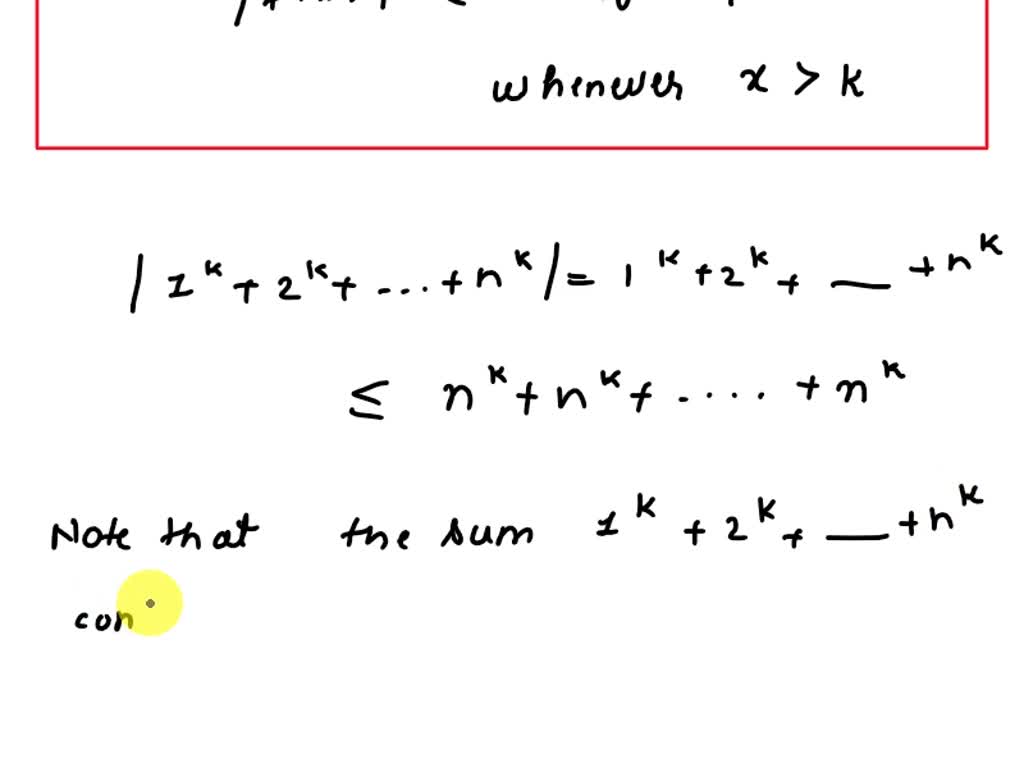 whenever x > k
|1^k + 2^k + ... + n^k| = 1^k + 2^k + __ + n^k
≤ n^k + n^k + .... + n^k
Note that the sum 1^k + 2^k + __ + n^k
con